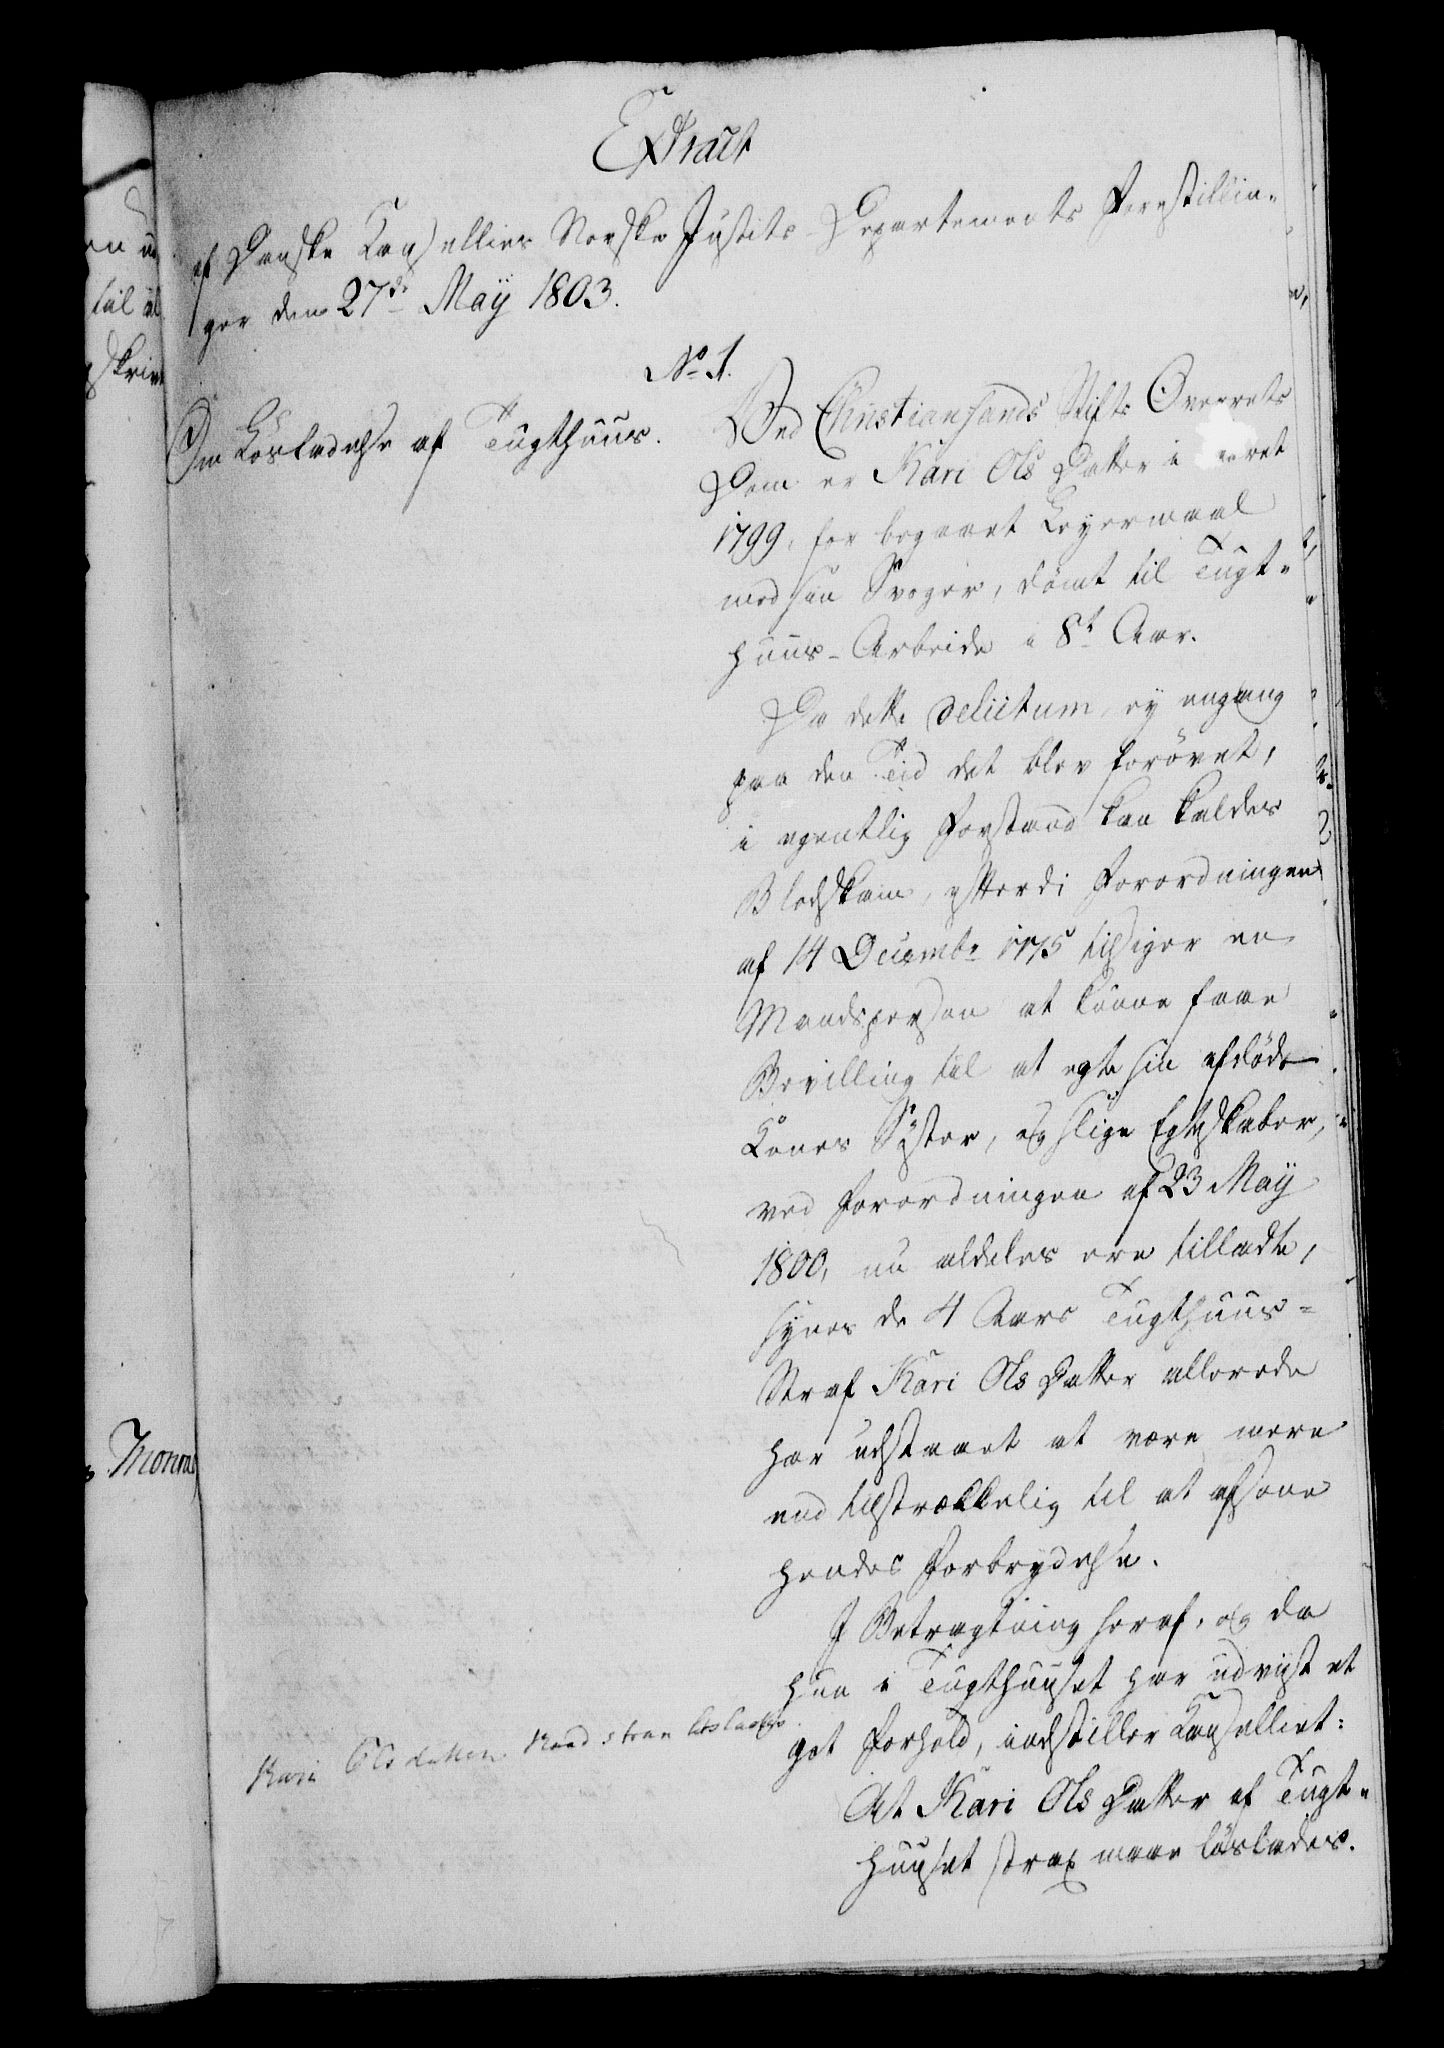 Extract
af Danske Cancelliets Norske Justits-Departements Forestillin-
ger den 27de May 1803.
No 1.
Om Løsladelse af Tugthuus.
Ved Christiansands Stifts Overrets
Dom er Kari Ols Datter i Aaret
1799, for begaaet Leyermaal
med sin Svoger, dömt til Tugt-
huus-Arbeide i 8t Aar.
Da dette delictum, ey engang
paa den Tid det blev forövet,
i egentlig Forstand kan kaldes
Blodskam, efterdi Forordningen
af 14 Decembr 1775 tilsiger en
Mandsperson at kunne faae
Bevilling til at egte sin afdöde
Kones Syster, og slige Egteskaber,
ved Forordningen af 23 May
1800, nu aldeles ere tilladte,
synes de 4 Aars Tugthuus-
Straf Kari Ols Datter allerede
har udstaaet at være mere
end tilstrækkelig til at afsone
hendes Forbrydelse.
I Betragtning heraf, og da
hun i Tugthuuset har udviist et
got Forhold, indstiller Cancelliet:
At Kari Ols Datter af Tugt-
huuset strax maae löslades.
Kari Ols Datter
Thomas